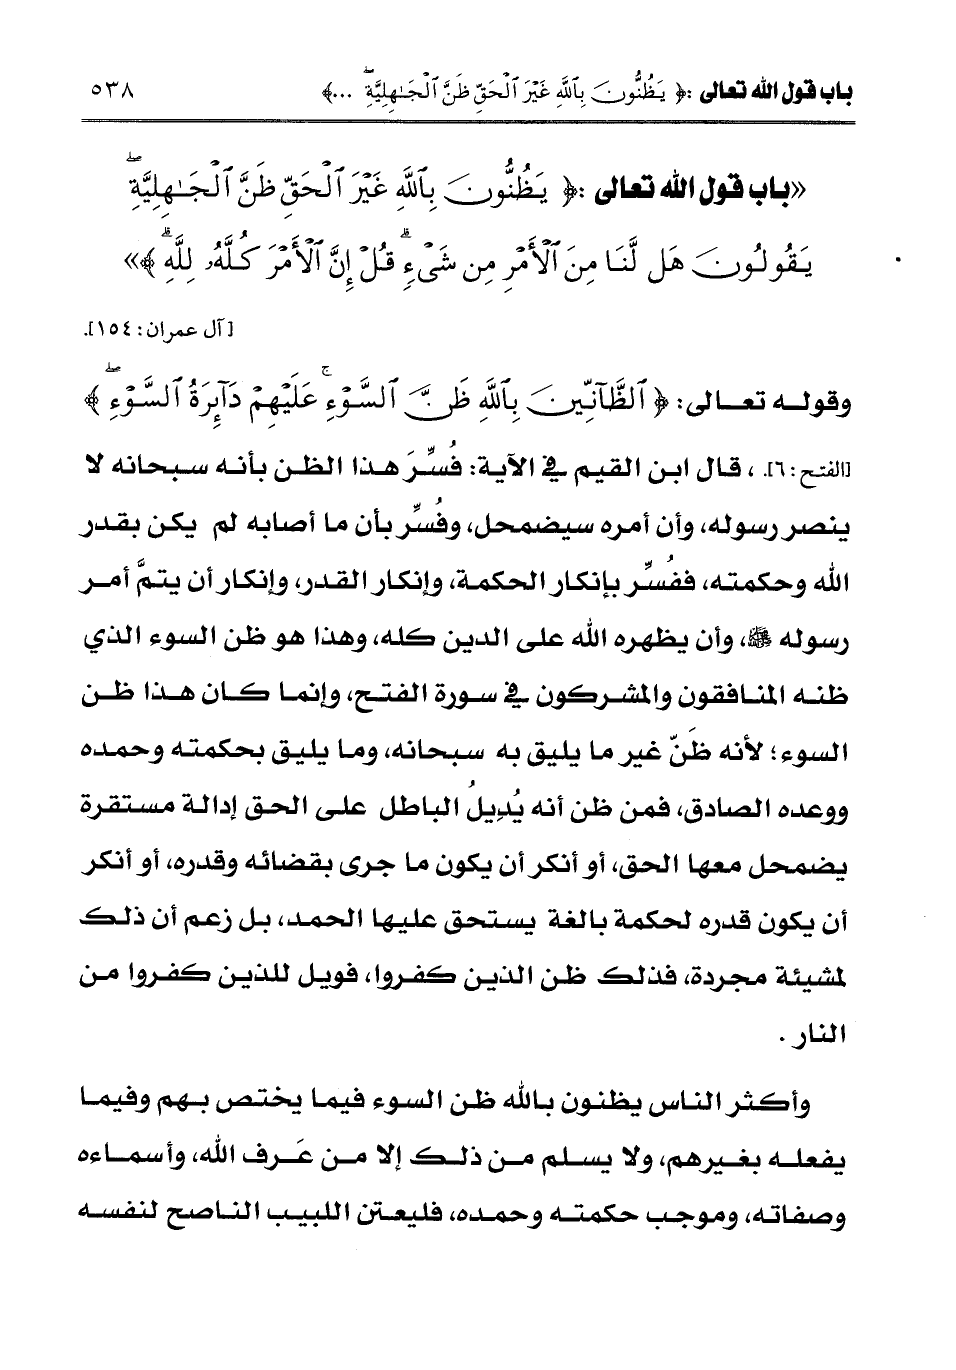 باب قول الله تعالى :﴿ يَظُنُّونَ بِٱللَّهِ غَيْرَ ٱلْحَقِّ ظَنَّ ٱلْجَٰهِلِيَّةِۖ ...﴾ ٥٣٨
«باب قول الله تعالى :﴿ يَظُنُّونَ بِٱللَّهِ غَيْرَ ٱلْحَقِّ ظَنَّ ٱلْجَٰهِلِيَّةِۖ
يَقُولُونَ هَل لَّنَا مِنَ ٱلْأَمْرِ مِن شَىْءٍۗ قُلْ إِنَّ ٱلْأَمْرَ كُلَّهُۥ لِلَّهِۗ ﴾»
[آل عمران: ١٥٤].
وقوله تعالى: ﴿ ٱلظَّآنِّينَ بِٱللَّهِ ظَنَّ ٱلسَّوْءِۚ عَلَيْهِمْ دَآئِرَةُ ٱلسَّوْءِۖ ﴾
[الفتح: ٦]. ، قال ابن القيم في الآية: فُسِّرَ هذا الظن بأنه سبحانه لا
ينصر رسوله، وأن أمره سيضمحل، وفُسِّر بأن ما أصابه لم يكن بقدر
الله وحكمته، ففُسِّر بإنكار الحكمة، وإنكار القدر، وإنكار أن يتمَّ أمر
رسوله ﷺ، وأن يظهره الله على الدين كله، وهذا هو ظن السوء الذي
ظنه المنافقون والمشركون في سورة الفتح، وإنما كان هذا ظن
السوء؛ لأنه ظَنّ غير ما يليق به سبحانه، وما يليق بحكمته وحمده
ووعده الصادق، فمن ظن أنه يُدِيلُ الباطل على الحق إدالة مستقرة
يضمحل معها الحق، أو أنكر أن يكون ما جرى بقضائه وقدره، أو أنكر
أن يكون قدره لحكمة بالغة يستحق عليها الحمد، بل زعم أن ذلك
لمشيئة مجردة، فذلك ظن الذين كفروا، فويل للذين كفروا من
النار .
وأكثر الناس يظنون بالله ظن السوء فيما يختص بهم وفيما
يفعله بغيرهم، ولا يسلم من ذلك إلا من عَرف الله، وأسماءه
وصفاته، وموجب حكمته وحمده، فليعتن اللبيب الناصح لنفسه